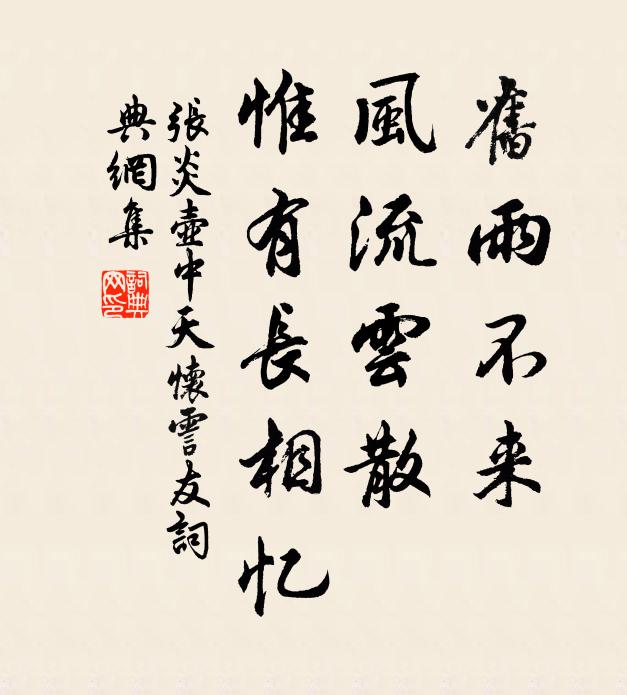 舊雨不来
風流雲散
惟有長相忆
張炎壺中天懷霅友詞
典網集
詞典
网印